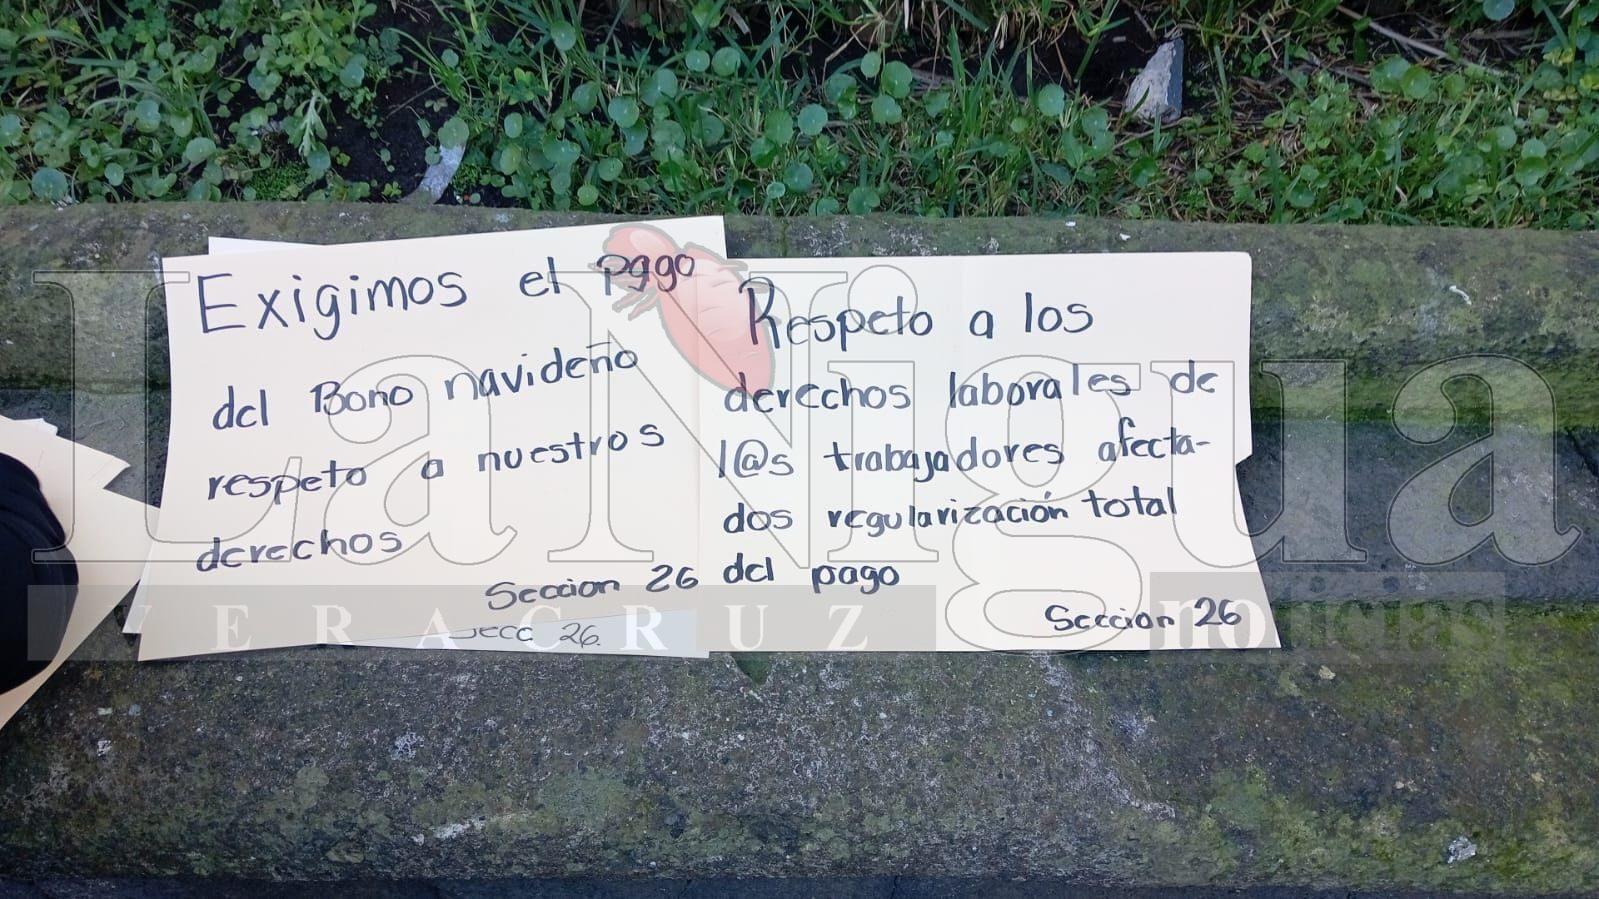 Exigimos el pago
del Bono navideño
respeto a nuestros
derechos
Seccion 26
Secc 26.
Respeto a los
derechos laborales de
l@s trabajadores afecta-
dos regularización total
del pago
Seccion 26
La Nigua
VERACRUZ
noticias